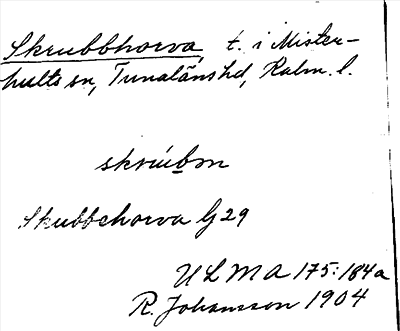 Skrubbhorva, t. i Mister-
hults sn, Tunaläns hd, Kalm. l.
skrúbm
Skubbehorva G 29
ULMA 175:184a
R. Johansson 1904